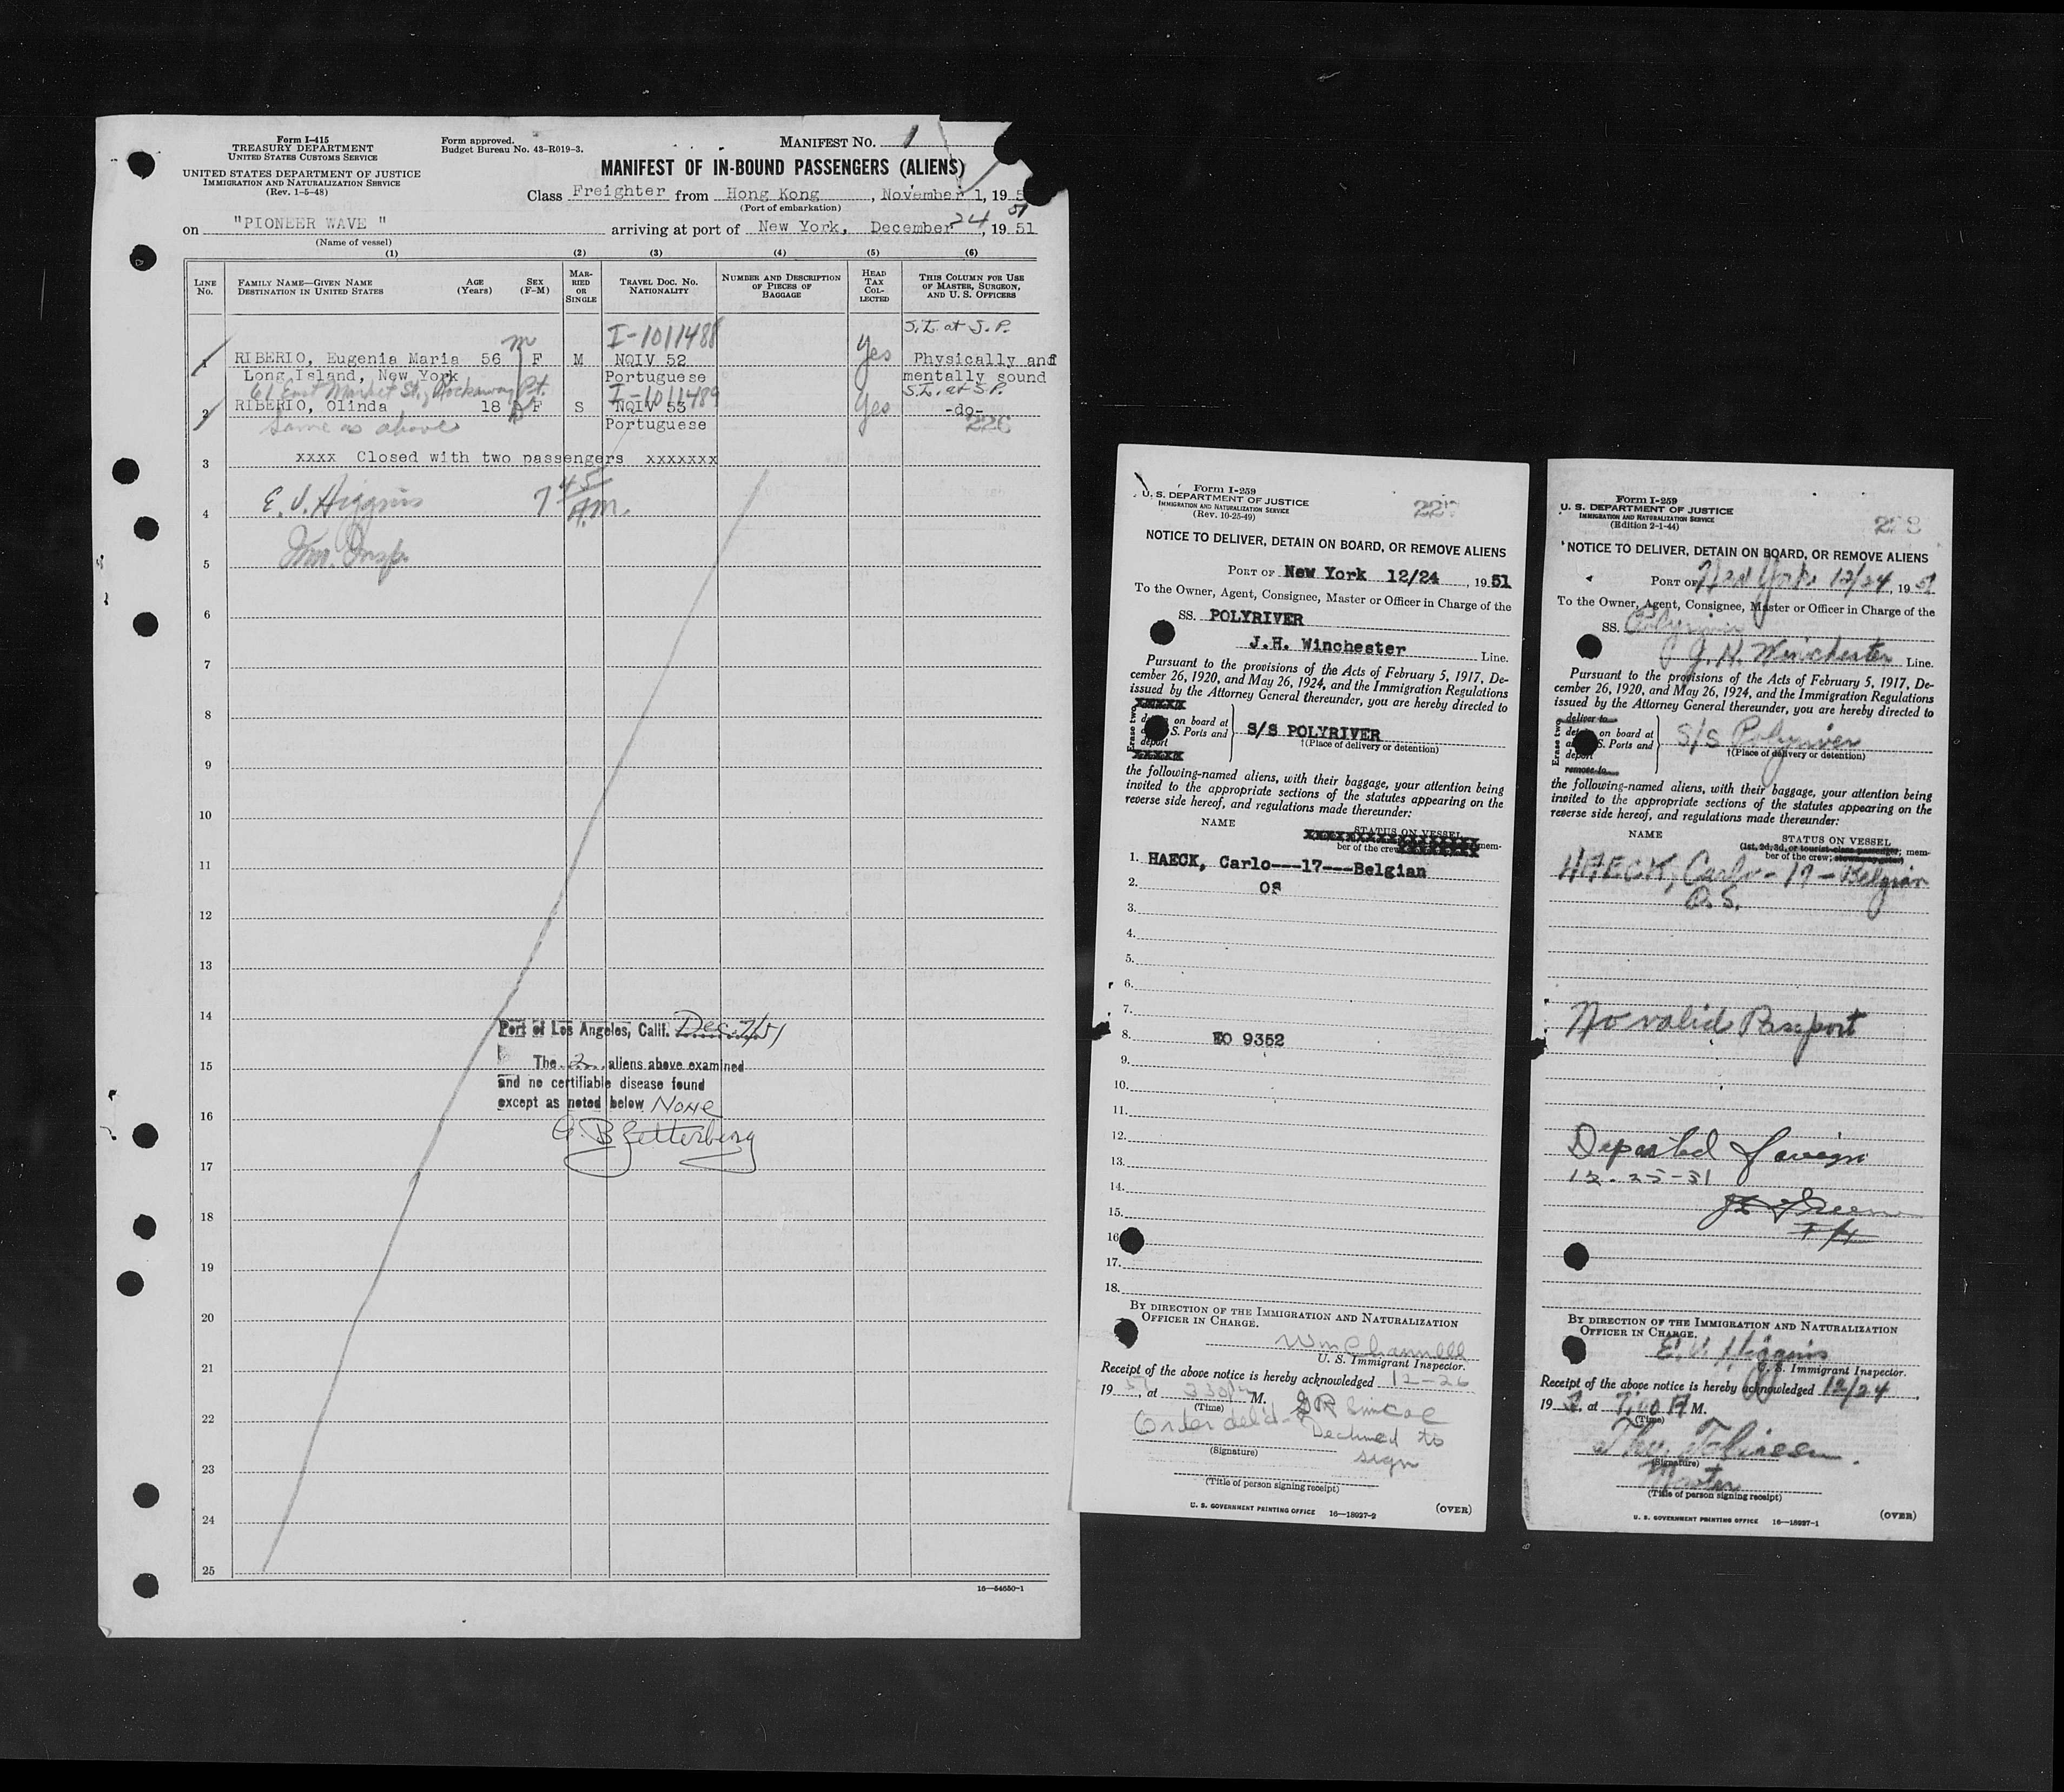 Form I-415
TREASURY DEPARTMENT
UNITED STATES CUSTOMS SERVICE
UNITED STATES DEPARTMENT OF JUSTICE
IMMIGRATION AND NATURALIZATION SERVICE
(Rev. 1-5-48)
Form approved.
Budget Bureau No. 43-R019-3.
MANIFEST NO. 1
MANIFEST OF IN-BOUND PASSENGERS (ALIENS)
Class Freighter from Hong Kong, November 1, 195
(Port of embarkation)
51
on "PIONEER WAVE" arriving at port of New York, December 24, 1951
(Name of vessel)
(1) (2) (3) (4) (5) (6)
LINE No.
FAMILY NAME—GIVEN NAME
DESTINATION IN UNITED STATES
AGE (Years)
SEX (F-M)
MARRIED OR SINGLE
TRAVEL DOC. NO. NATIONALITY
NUMBER AND DESCRIPTION OF PIECES OF BAGGAGE
HEAD TAX COLLECTED
THIS COLUMN FOR USE OF MASTER, SURGEON, AND U. S. OFFICERS
I-1011488 S.I. at S.P.
m
1 RIBERIO, Eugenia Maria 56 F M NQIV 52 Yes Physically and
Long Island, New York Portuguese mentally sound
61 East Market St., Rockaway Pt. I-1011489 S.I. at S.P.
2 RIBERIO, Olinda 18 F S NQIV 53 Yes -do-
Same as above Portuguese 226
3 xxxx Closed with two passengers xxxxxxx
4 E. V. Higgins 7 45 A.M.
5 Imm. Insp.
6
7
8
9
10
11
12
13
14 Port of Los Angeles, Calif. Dec. 7/51
15 The 2 aliens above examined
and no certifiable disease found
16 except as noted below None
G. B. Zetterberg
17
18
19
20
21
22
23
24
25
16—54650-1
Form I-259
U. S. DEPARTMENT OF JUSTICE
IMMIGRATION AND NATURALIZATION SERVICE
(Rev. 10-25-49)
227
NOTICE TO DELIVER, DETAIN ON BOARD, OR REMOVE ALIENS
PORT OF New York 12/24, 1951
To the Owner, Agent, Consignee, Master or Officer in Charge of the
SS. POLYRIVER
J.H. Winchester Line.
Pursuant to the provisions of the Acts of February 5, 1917, De-
cember 26, 1920, and May 26, 1924, and the Immigration Regulations
issued by the Attorney General thereunder, you are hereby directed to
Erase two
on board at
S. Ports and
deport
S/S POLYRIVER
†(Place of delivery or detention)
the following-named aliens, with their baggage, your attention being
invited to the appropriate sections of the statutes appearing on the
reverse side hereof, and regulations made thereunder:
NAME STATUS ON VESSEL
mem-
ber of the crew
1. HAECK, Carlo---17---Belgian
2. OS
3.
4.
5.
6.
7.
8. EO 9352
9.
10.
11.
12.
13.
14.
15.
16
17.
18.
BY DIRECTION OF THE IMMIGRATION AND NATURALIZATION
OFFICER IN CHARGE.
U. S. Immigrant Inspector.
Receipt of the above notice is hereby acknowledged 12-26
1951, at 330P M.
(Time)
Order del'd-
Declined to
(Signature) sign
(Title of person signing receipt)
U. S. GOVERNMENT PRINTING OFFICE 16—18927-2 (OVER)
Form I-259
U. S. DEPARTMENT OF JUSTICE
IMMIGRATION AND NATURALIZATION SERVICE
(Edition 2-1-44)
228
NOTICE TO DELIVER, DETAIN ON BOARD, OR REMOVE ALIENS
PORT OF New York 12/24, 1951
To the Owner, Agent, Consignee, Master or Officer in Charge of the
SS. Polyriver
J. H. Winchester Line.
Pursuant to the provisions of the Acts of February 5, 1917, De-
cember 26, 1920, and May 26, 1924, and the Immigration Regulations
issued by the Attorney General thereunder, you are hereby directed to
Erase two
deliver to
on board at
S. Ports and
deport
remove to
S/S Polyriver
†(Place of delivery or detention)
the following-named aliens, with their baggage, your attention being
invited to the appropriate sections of the statutes appearing on the
reverse side hereof, and regulations made thereunder:
NAME STATUS ON VESSEL
(1st, 2d, 3d, or tourist-class passenger; mem-
ber of the crew; stowaway, etc.)
HAECK, Carlo - 17 - Belgian
O.S.
No valid Passport
Departed Foreign
12-25-51
BY DIRECTION OF THE IMMIGRATION AND NATURALIZATION
OFFICER IN CHARGE.
E. V. Higgins
U. S. Immigrant Inspector.
Receipt of the above notice is hereby acknowledged 12/24,
19, at 7:40 A M.
(Time)
(Signature)
Master
(Title of person signing receipt)
U. S. GOVERNMENT PRINTING OFFICE 16—18927-1 (OVER)